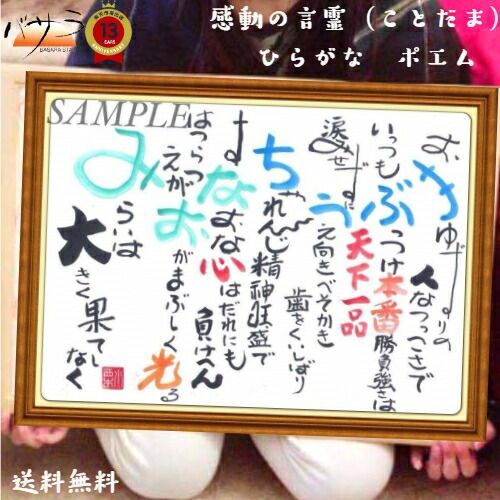 バサラ
13
YEARS
ANNIVERSARY
感動の言霊（ことだま）
ひらがな ポエム
SAMPLE
ゆずりの
人なつっこさで
いつもぶっつけ本番勝負強さは
天下一品
涙みせずに
うえ向きべそかき
歯をくいしばり
ちゃれんじ精神旺盛で
すなおな心はだれにも
負けん
はつらつ
えがおがまぶしく光る
みらいは
大きく果てしなく
送料無料